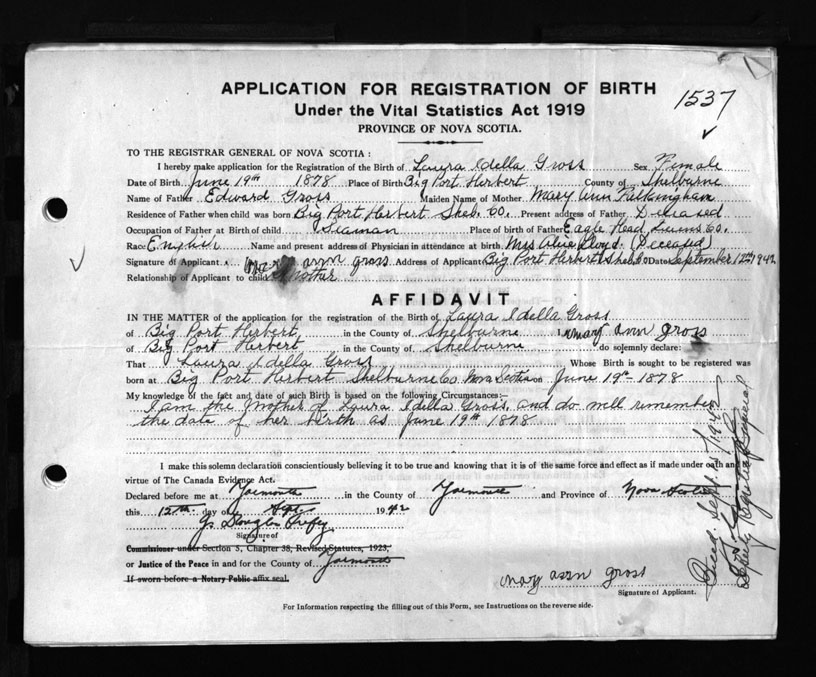 APPLICATION FOR REGISTRATION OF BIRTH
1537
Under the Vital Statistics Act 1919
PROVINCE OF NOVA SCOTIA.
TO THE REGISTRAR GENERAL OF NOVA SCOTIA :
I hereby make application for the Registration of the Birth of Laura Idella Gross Sex Female
Date of Birth June 19th 1878 Place of Birth Big Port Herbert County of Shelburne
Name of Father Edward Gross Maiden Name of Mother Mary Ann
Residence of Father when child was born Big Port Herbert Shel. Co. Present address of Father Diceased
Occupation of Father at Birth of child Seaman Place of birth of Father Eagle Head Co.
Race English Name and present address of Physician in attendance at birth Mrs Alice Lloyd. (Deceased)
Signature of Applicant mary ann gross Address of Applicant Big Port Herbert Shel Co Date September 12th 1942
Relationship of Applicant to child Mother
AFFIDAVIT
IN THE MATTER of the application for the registration of the Birth of Laura Idella Gross
of Big Port Herbert in the County of Shelburne I, mary ann gross
of Big Port Herbert in the County of Shelburne do solemnly declare:
That Laura Idella Gross Whose Birth is sought to be registered was
born at Big Port Herbert Shelburne Co Nova Scotia on June 19th 1878
My knowledge of the fact and date of such Birth is based on the following Circumstances:—
I am the Mother of Laura Idella Gross, and do well remember
the date of her birth as June 19th 1878
I make this solemn declaration conscientiously believing it to be true and knowing that it is of the same force and effect as if made under oath and by
virtue of The Canada Evidence Act.
Declared before me at Yarmouth in the County of Yarmouth and Province of Nova Scotia
this 12th day of Sept. 1942
Douglas
Signature of
Commissioner under Section 3, Chapter 38, Revised Statutes, 1923,
or Justice of the Peace in and for the County of Yarmouth
If sworn before a Notary Public affix seal.
mary ann gross
Signature of Applicant.
For Information respecting the filling out of this Form, see Instructions on the reverse side.